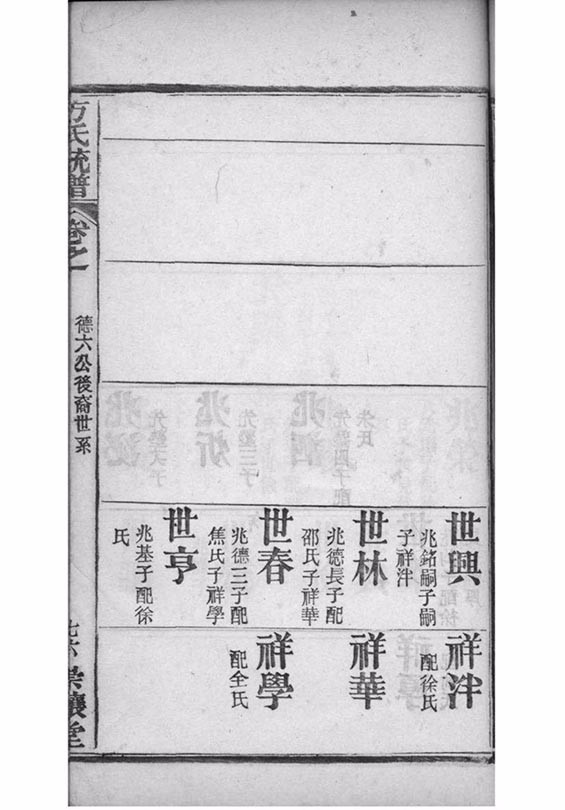 世興
兆銘嗣子嗣
子祥泮
世林
兆德長子配
邵氏子祥華
世春
兆德三子配
焦氏子祥學
世亨
兆基子配徐
氏
祥泮
配徐氏
祥華
祥學
配全氏
方氏統譜
卷之一
德六公後裔世系
堂